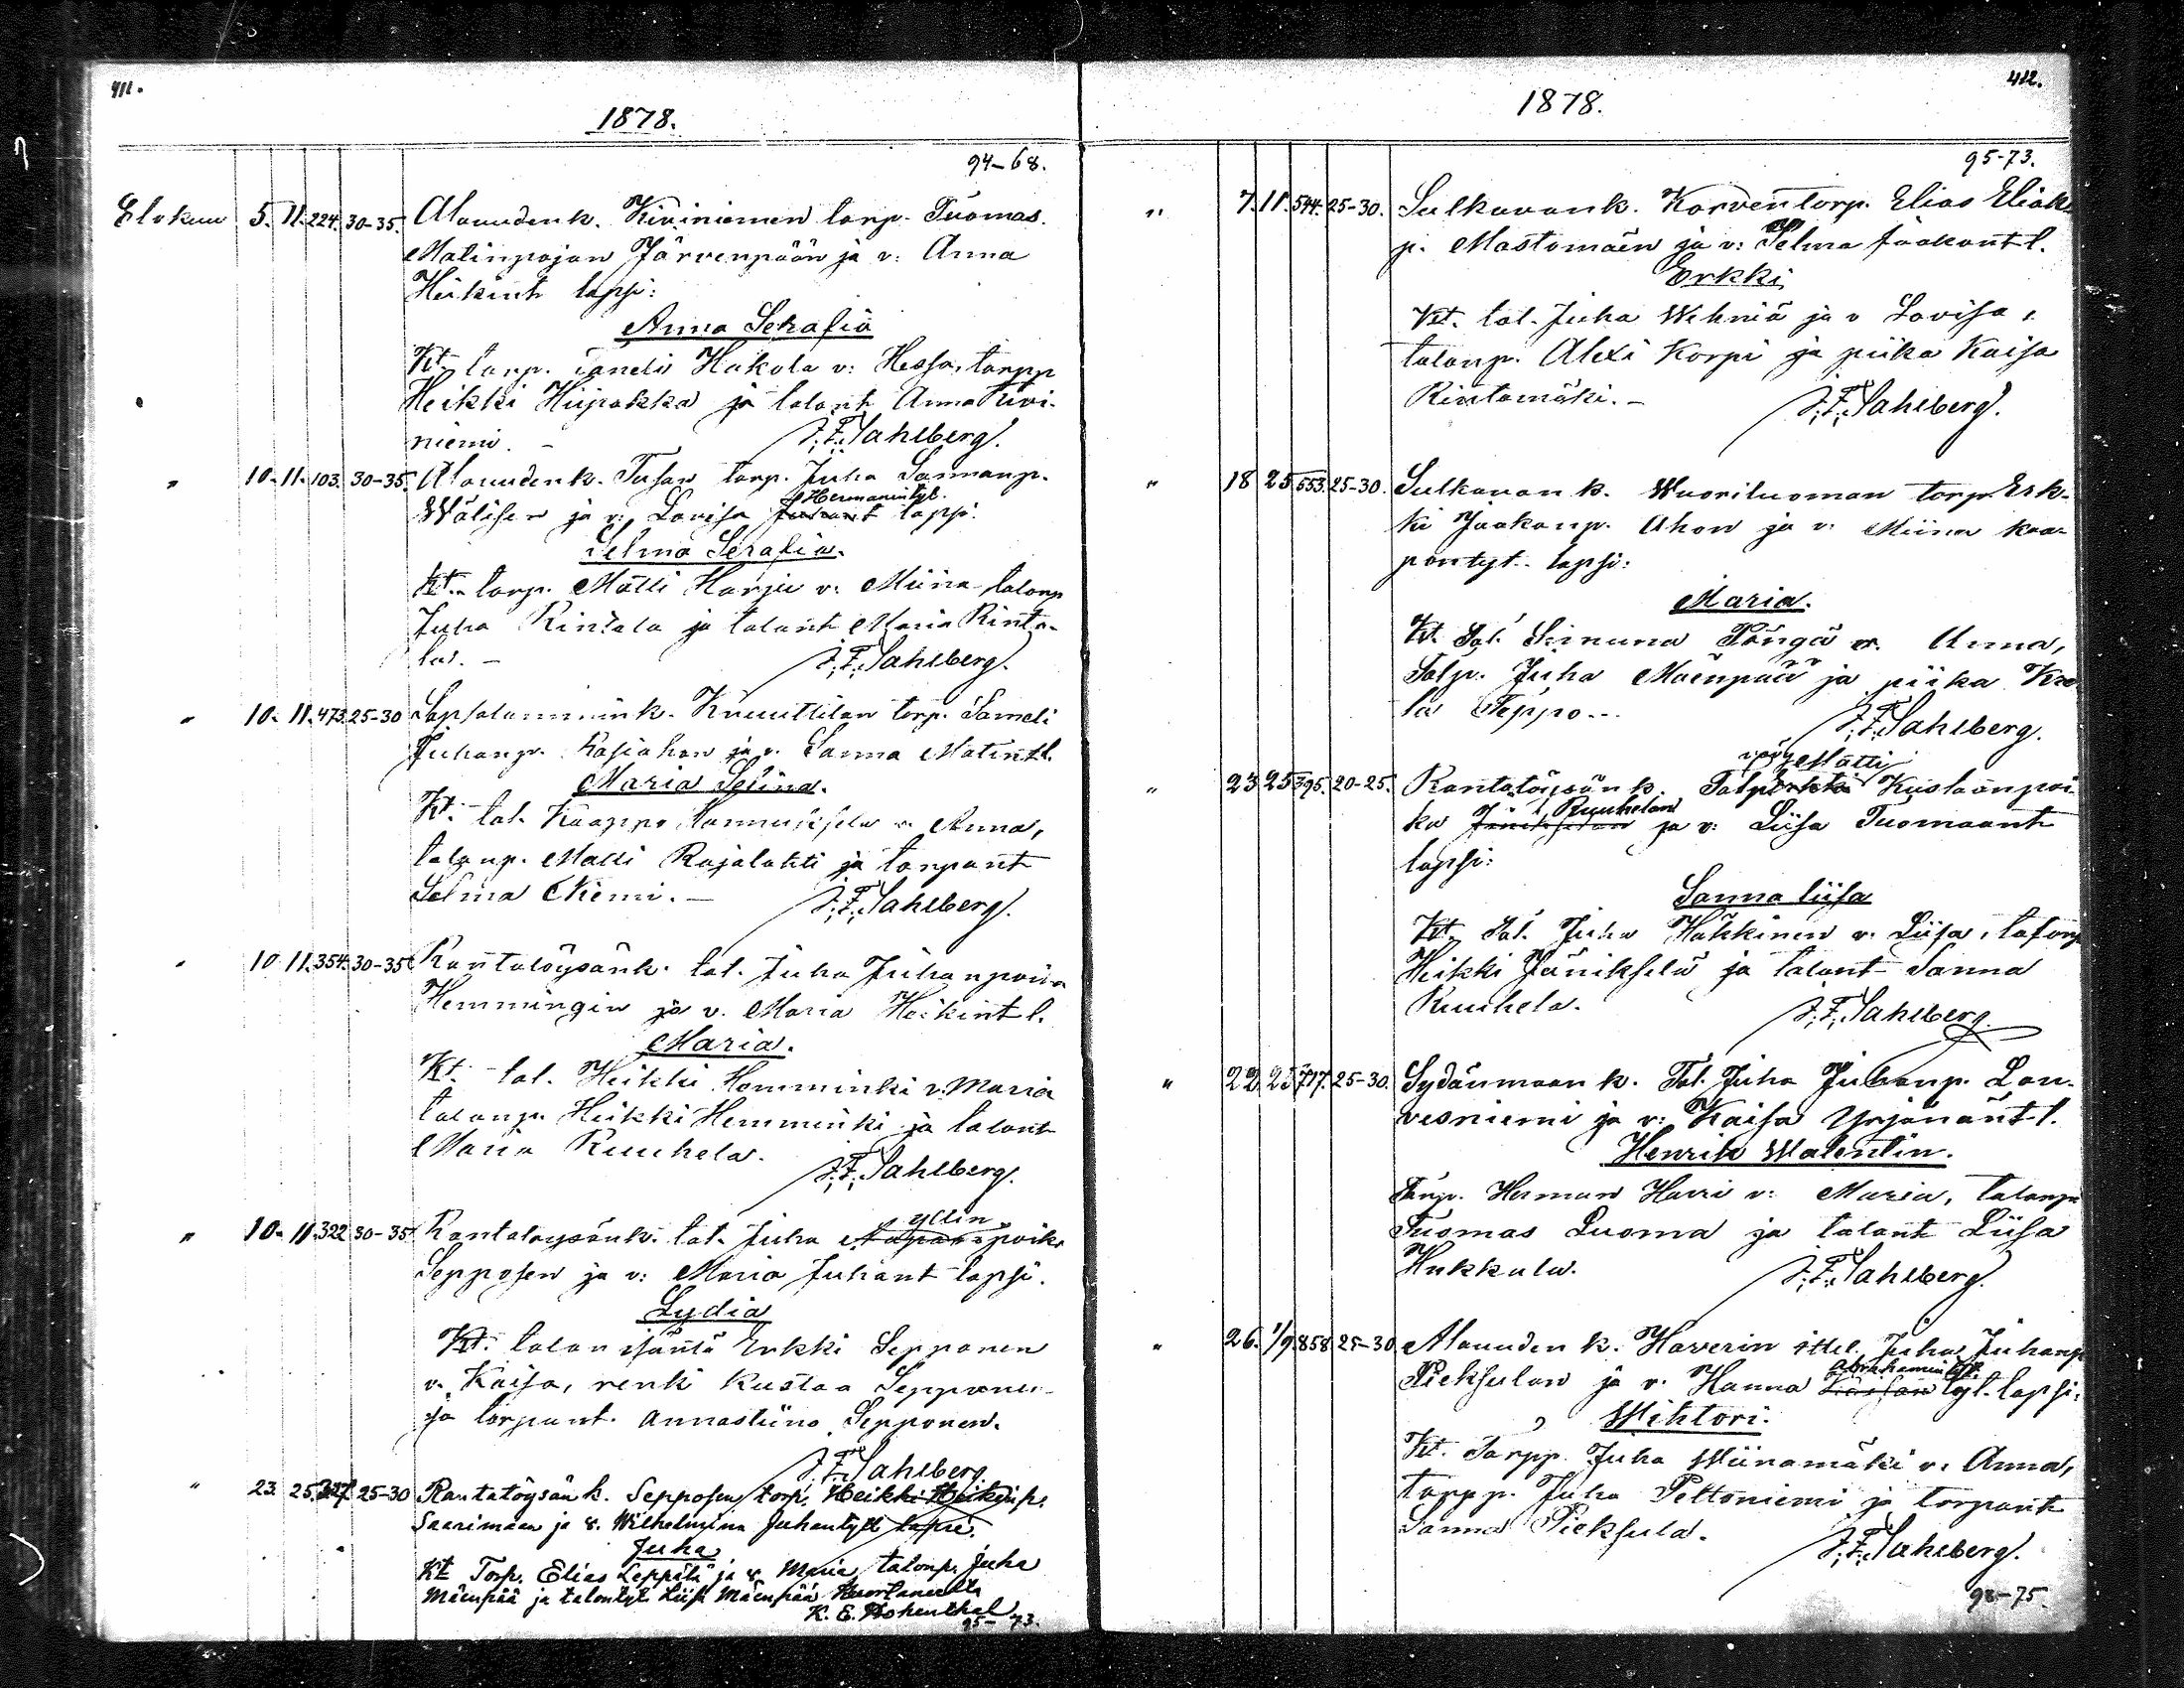 411.
1878.
94-68.
Elokuu 5. 11. 224. 30-35. Alavuden k. Kiviniemen torp. Tuomas
Matinpojan Järvenpään ja v: Anna
Heikint. lapsi:
Anna Serafia
Kt. torp. Taneli Hakola v: Hessa, torpp
Heikki Hiipakka ja talont. Anna Kivi-
niemi. — J. F. Sahlberg.
" 10. 11. 103. 30-35. Alavuden k. Tusan torp. Juha Samanp.
Hermanintyt.
Wälisen ja v: Lovisa Juhant lapsi.
Selma Serafia.
Kt. torp. Matti Harju v: Miina, talonp
Juha Rintala ja talont. Maria Rinta-
la. — J. F. Sahlberg.
" 10. 11. 473. 25-30 Sapsalammink. Knuuttilan torp. Sameli
Juhanp. Rasiahon ja v. Sanna Matintl.
Maria Selina.
Kt. tal. Kaappo Hannuksela v: Anna,
talonp. Matti Rajalahti ja torpant
Selma Niemi. — J. F. Sahlberg.
" 10 11. 354. 30-35 Rantatöysänk. tal. Juha Juhanpoika
Hemmingin ja v. Maria Heikint l.
Maria.
Kt. tal. Heikki Hemminki v: Maria
talonp. Heikki Hemminki ja talont
Maria Ruuhela.
J. F. Sahlberg.
" 10. 11. 322 30-35 Rantatöysänk. tal. Juha poik.
Yllin
Sepposen ja v: Maria Juhant lapsi.
Lydia
Kt. talon isäntä Erkki Sepponen
v. Kaisa, renki Kustaa Sepponen
ja torpant. Annastiina Sepponen.
J. F. Sahlberg.
" 23. 25. 327 25-30 Rantatöysän k. Sepposen torp. Heikki Heikinp.
Saarimäen ja v. Wilhelmina Juhantytt lapsi.
Juha
Kt Torp. Elias Leppälä ja v. Maria talonp. Juha
Mäenpää ja talontyt. Liisa Mäenpää Kuortaneelta
K. E. Hohenthal
95-73.
412.
1878.
95-73.
" 7. 11. 544. 25-30. Sulkavank. Korven torp. Elias Eliak
p. Mastomäen ja v: Selma Jaakont l.
Erkki
Kt. tal. Juha Wehniä ja v Lovisa,
talonp. Alexi Korpi ja piika Kaisa
Rintamäki. — J. F. Sahlberg.
" 18 25 553. 25-30. Sulkavan k. Wuoriluoman torp. Erk-
ki Jaakonp. Ahon ja v: Miina Kaa-
pontyt. lapsi:
Maria.
Kt. Tal. Simuna Pängä v. Anna,
Talp. Juha Mäenpää ja piika
Teppo. — J. F. Sahlberg.
Matti
" 23 25 395. 20-25. Rantatöysän k. Talp Erkki Kustaanpoi
Ruuhelan
ka Jäniksen ja v: Liisa Tuomaant
lapsi:
Sanna Liisa
Kt. Tal. Juha Häkkinen v: Liisa, talonp
Heikki Jäniksela ja talont Sanna
Ruuhela. J. F. Sahlberg
" 22 25 717. 25-30. Sydänmaan k. Tal. Juha Juhanp. Lan-
vesniemi ja v: Kaisa Yrjänänt l.
Henrik Walentin.
Torp. Herman Harri v: Maria, talonp
Tuomas Luoma ja talont Liisa
Hukkala. J. F. Sahlberg.
" 26. 1/9. 858. 25-30 Alavuden k. Haverin ittel. Juha Juhanp
Abrahamin
Pieksulan ja v. Hanna tyt. lapsi:
Wihtori.
Kt. Torpp. Juha Wiinamäki v. Anna,
torpp. Juha Peltoniemi ja torpant
Sanna Pieksula. J. F. Sahlberg.
98-75.